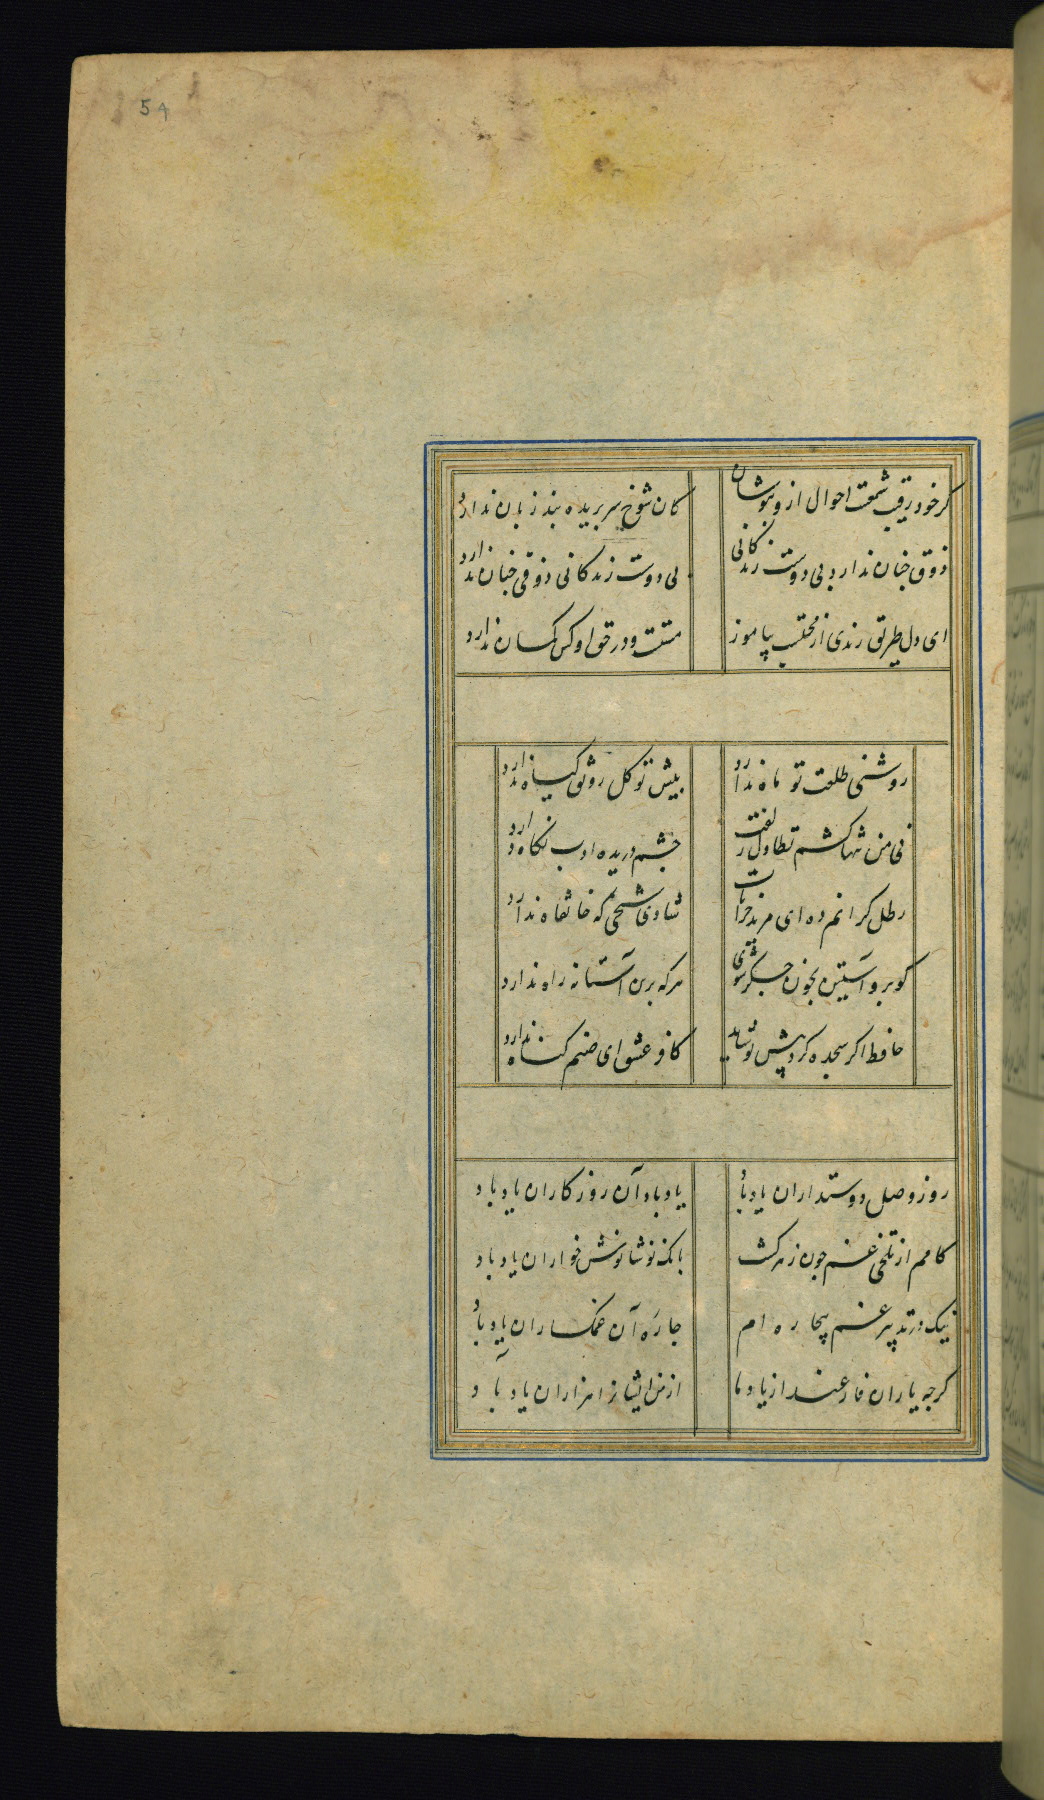 54
کر خود رقیب شمعت احوال ازو بپوشان
کان شوخ سر بریده بند زبان ندارد
ذوق جنان ندارد بی دوست زندکانی
بی دوست زندکانی ذوقی جنان ندارد
ای دل طریق رندی از محتسب بیاموز
مستت و در حق او کس کمان ندارد
روشنی طلعت تو ماه ندارد
بیش تو کل رونق کیاه ندارد
نی من تنها کشم تطاول زلفت
جشم دریده ادب نکاه دارد
رطل کرانم ده ای مرید خرابات
شادی شیخی که خانقاه ندارد
کو برو آستین بخون جکر شوی
هرکه برین آستانه راه ندارد
حافظ اکر سجده کرد پیش تو شاید
کافر عشق ای صنم کناه ندارد
روز وصل دوستداران یاد باد
یاد باد آن روزکاران یاد باد
کامم از تلخی غم جون زهر کشت
بانک نوشانوش خواران یاد باد
نیک در تدبیر غم بیجاره ام
جاره آن غمکساران یاد باد
کرجه یاران فارغند از یاد ما
از من ایشانرا هزاران یاد باد